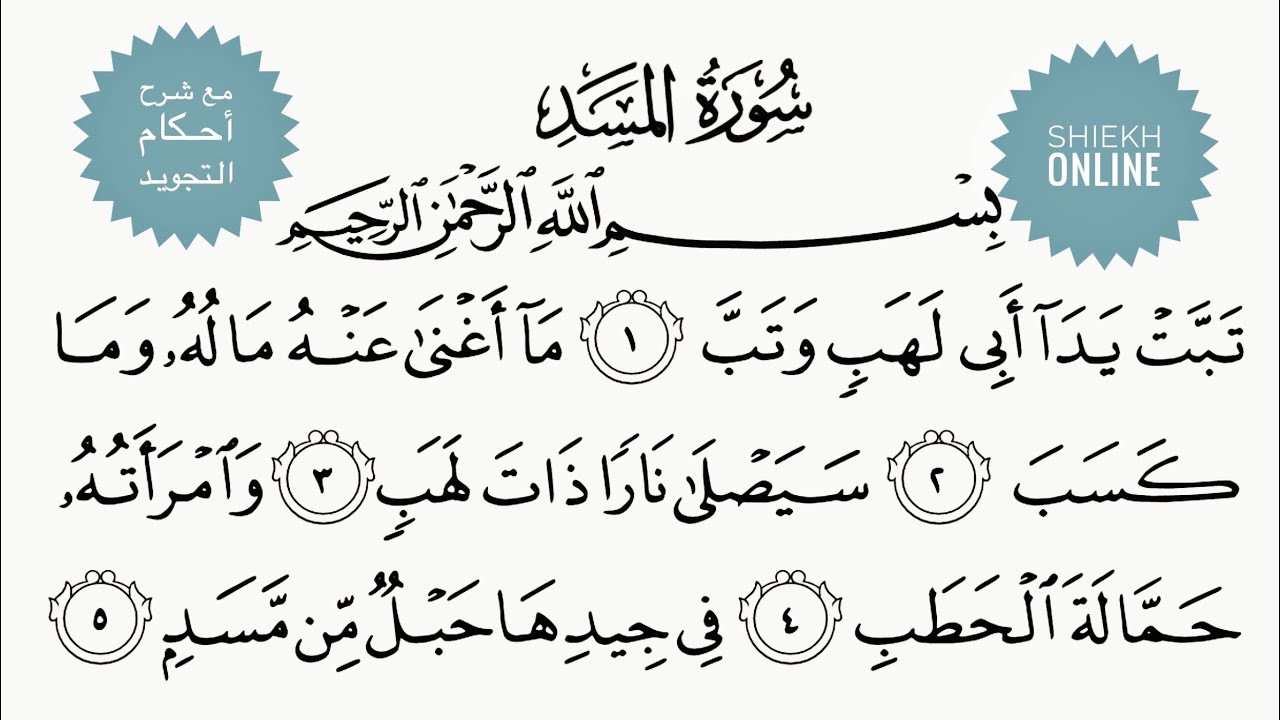 مع شرح
أحكام
التجويد
SHIEKH
ONLINE
سُورَةُ المَسَدِ
بِسْمِ ٱللَّهِ ٱلرَّحْمَٰنِ ٱلرَّحِيمِ
تَبَّتْ يَدَآ أَبِى لَهَبٍ وَتَبَّ ١ مَآ أَغْنَىٰ عَنْهُ مَالُهُۥ وَمَا
كَسَبَ ٢ سَيَصْلَىٰ نَارًا ذَاتَ لَهَبٍ ٣ وَٱمْرَأَتُهُۥ
حَمَّالَةَ ٱلْحَطَبِ ٤ فِى جِيدِهَا حَبْلٌ مِّن مَّسَدٍ ٥